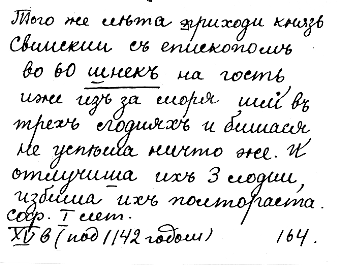 Того же лѣта приходи князь
Свѣискии съ епископомъ
во 60 шнекъ на гость
иже изъ за моря шли въ
трехъ лодияхъ и бишася
не успѣша ничто же. И
отлучиша ихъ 3 лодии,
избиша ихъ полтораста.
соф. I лет.
XV в (под 1142 годом) 164.